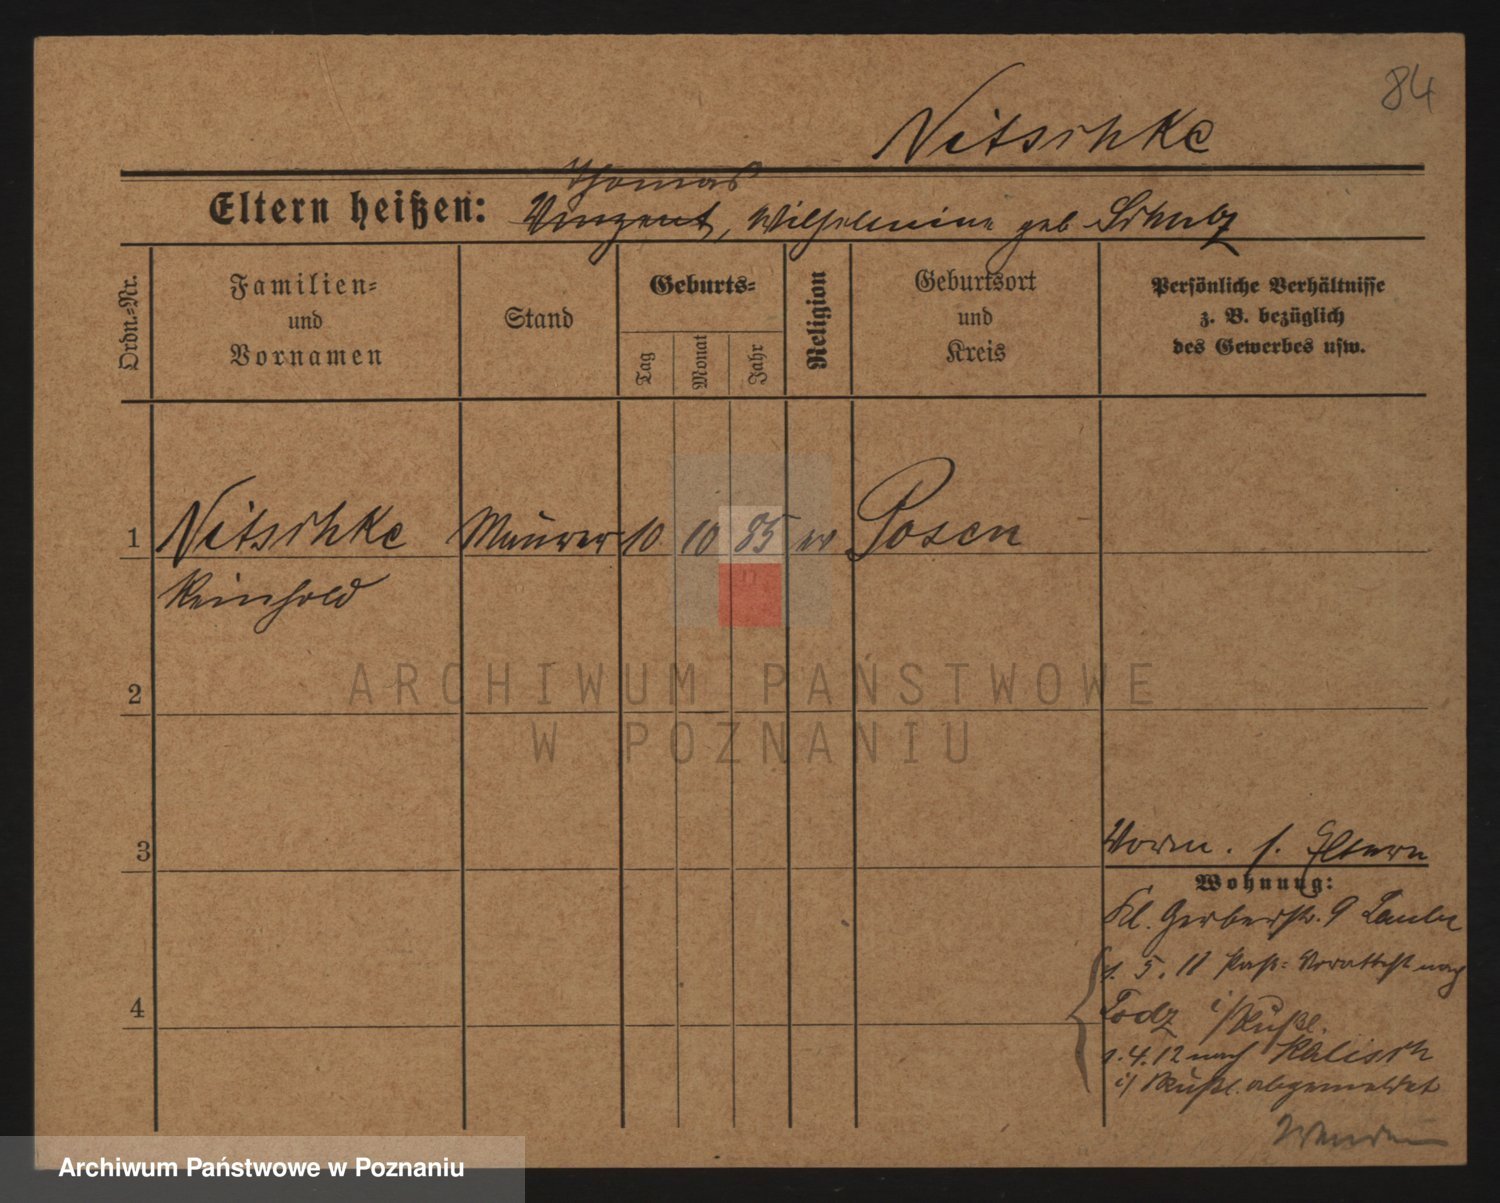 84
Nitschke
Thomas
Eltern heißen: Vinzent, Wilhelmine geb Schulz
Ordn.-Nr.
Familien- und Vornamen
Stand
Geburts-
Tag
Monat
Jahr
Religion
Geburtsort und Kreis
Persönliche Verhältnisse
z. B. bezüglich
des Gewerbes usw.
1 Nitschke Maurer 10 10 85 ev Posen
Reinhold
2
ARCHIWUM PAŃSTWOWE
W POZNANIU
3
Eltern
Wohnung:
Kl. Gerberstr. 9
5. 11 nach
4
Lodz i/Rußl.
1.4.12 nach Kalisch
i/ Rußl. abgemeldet
Wenden
Archiwum Państwowe w Poznaniu